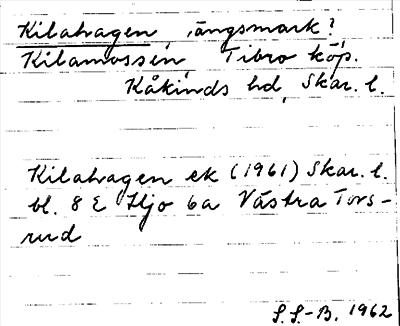 Kilahagen, ängsmark?
Kilamossen, Tibro köp.
Kåkinds hd, Skar. l.
Kilahagen ek (1961) Skar. l.
bl. 8 E Hjo 6a Västra Tors-
rud
S.S.-B. 1962